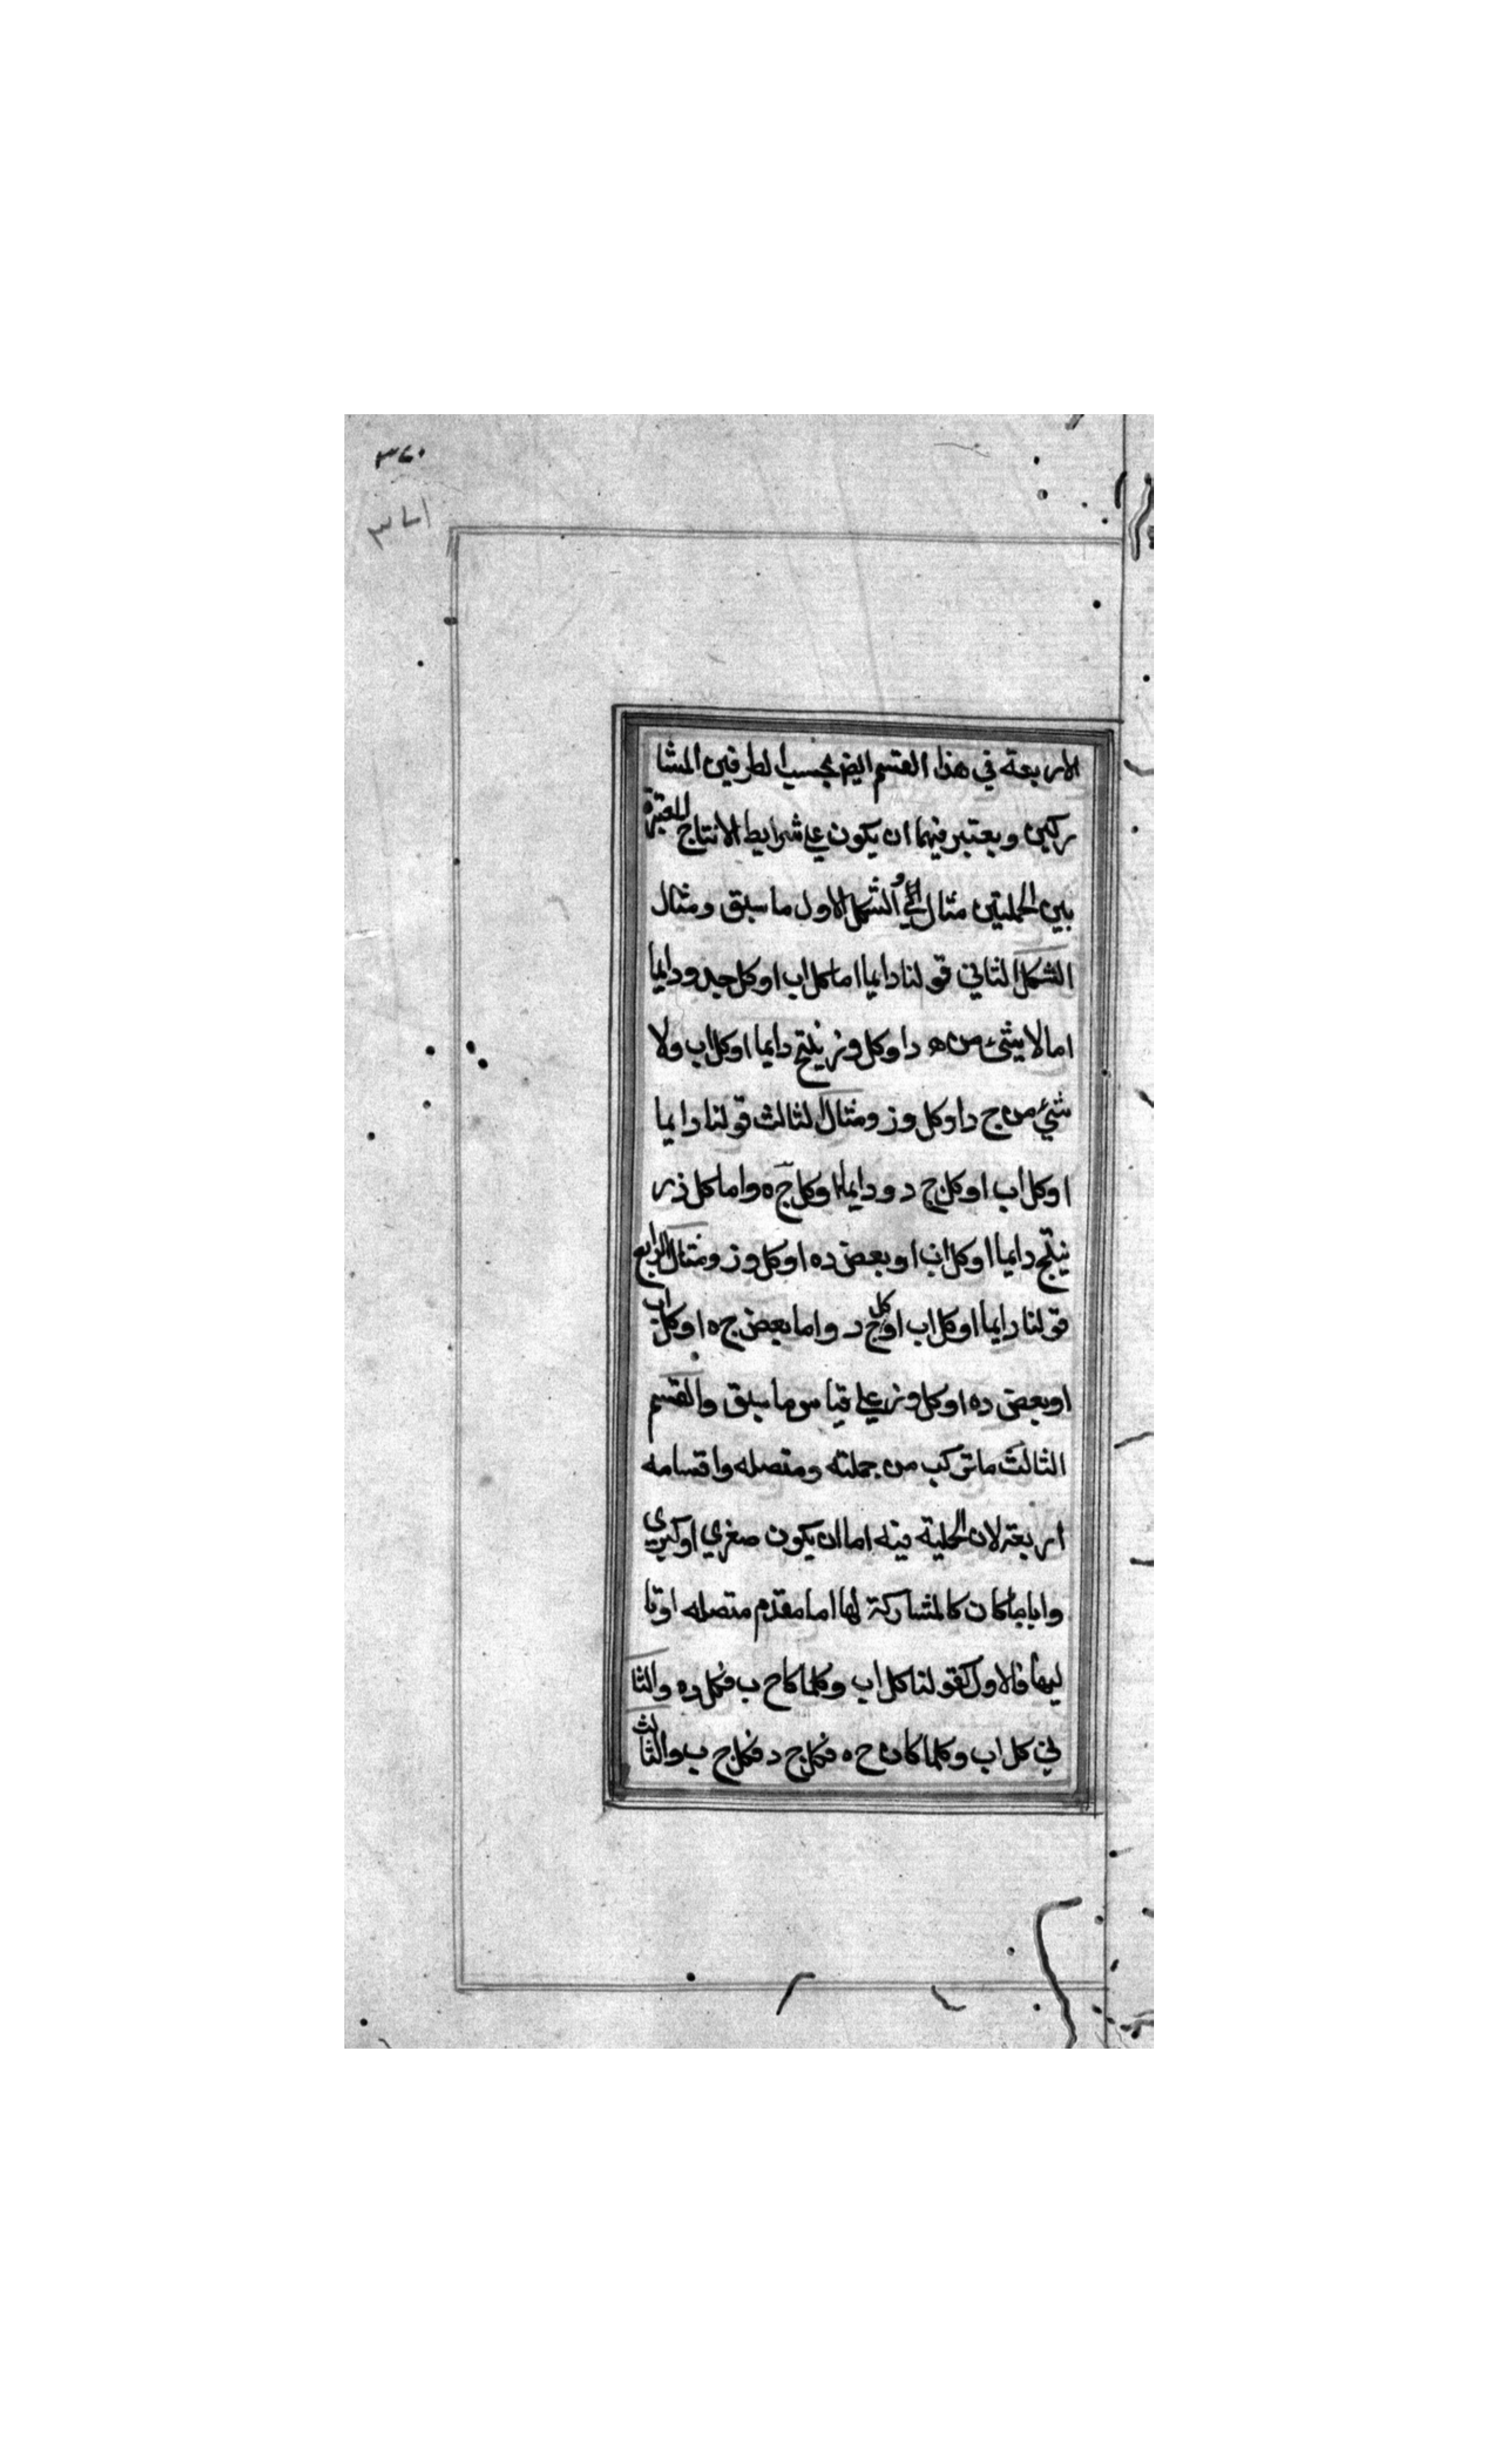 ٣٤٠
الاربعة في هذا القسم ايض بحسب الطرفين المشا
ركين ويعتبر فيهما ان يكون علي شرايط الانتاج المعتبرة
بين الحمليتين مثال الشكل الاول ما سبق ومثال
الشكل الثاني قولنا دايما اما كل اب او كل جد ودايما
اما لا شئ من ه د او كل وز ينتج دايما او كل اب ولا
شئ من ج د او كل وز ومثال الثالث قولنا دايما
او كل اب او كل ج د ودايما او كل ج ه واما كل زر
ينتج دايما او كل اب او بعض ده او كل وز ومثال الرابع
قولنا دايما او كل اب او كل ج د واما بعض ج ه او كل اب
او بعض ده او كل وز علي قياس ما سبق والقسم
الثالث ما تركب من جملته ومتصله واقسامه
اربعة لان الحملية فيه اما ان يكون صغري او كبري
وايا ما كان كالمشاركة لها اما مقدم متصله او تا
ليها فالاول كقولنا كل اب وكلما كا ح ب فكل ده والثا
ني كل اب وكلما كان ح ه فكل ج د فكل ج ب والثالث